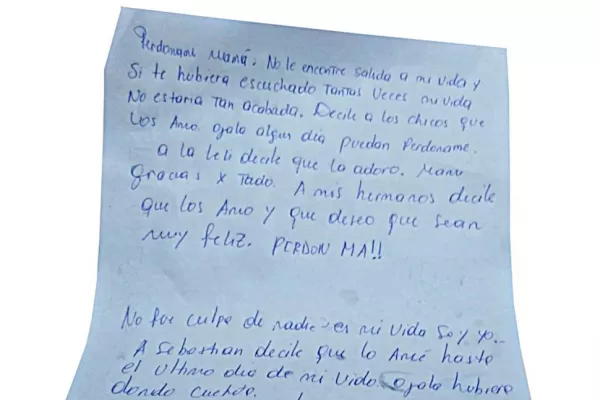 Perdoname Mamá. No le encontre salida a mi vida y
Si te hubiera escuchado Tantas Veces mi vida
No estaria Tan acabada. Decile a los chicos que
Los Amo ojala algun dia puedan Perdoname.
a la Leli decile que la adoro. Manu
gracias x Todo. A mis hermanos decile
que los Amo y que deseo que sean
muy feliz. PERDON MA!!
No fue culpa de nadie es mi vida Soy yo..
A Sebastian decile que lo Amé hasta
el ultimo dia de mi vida. ojala hubiera